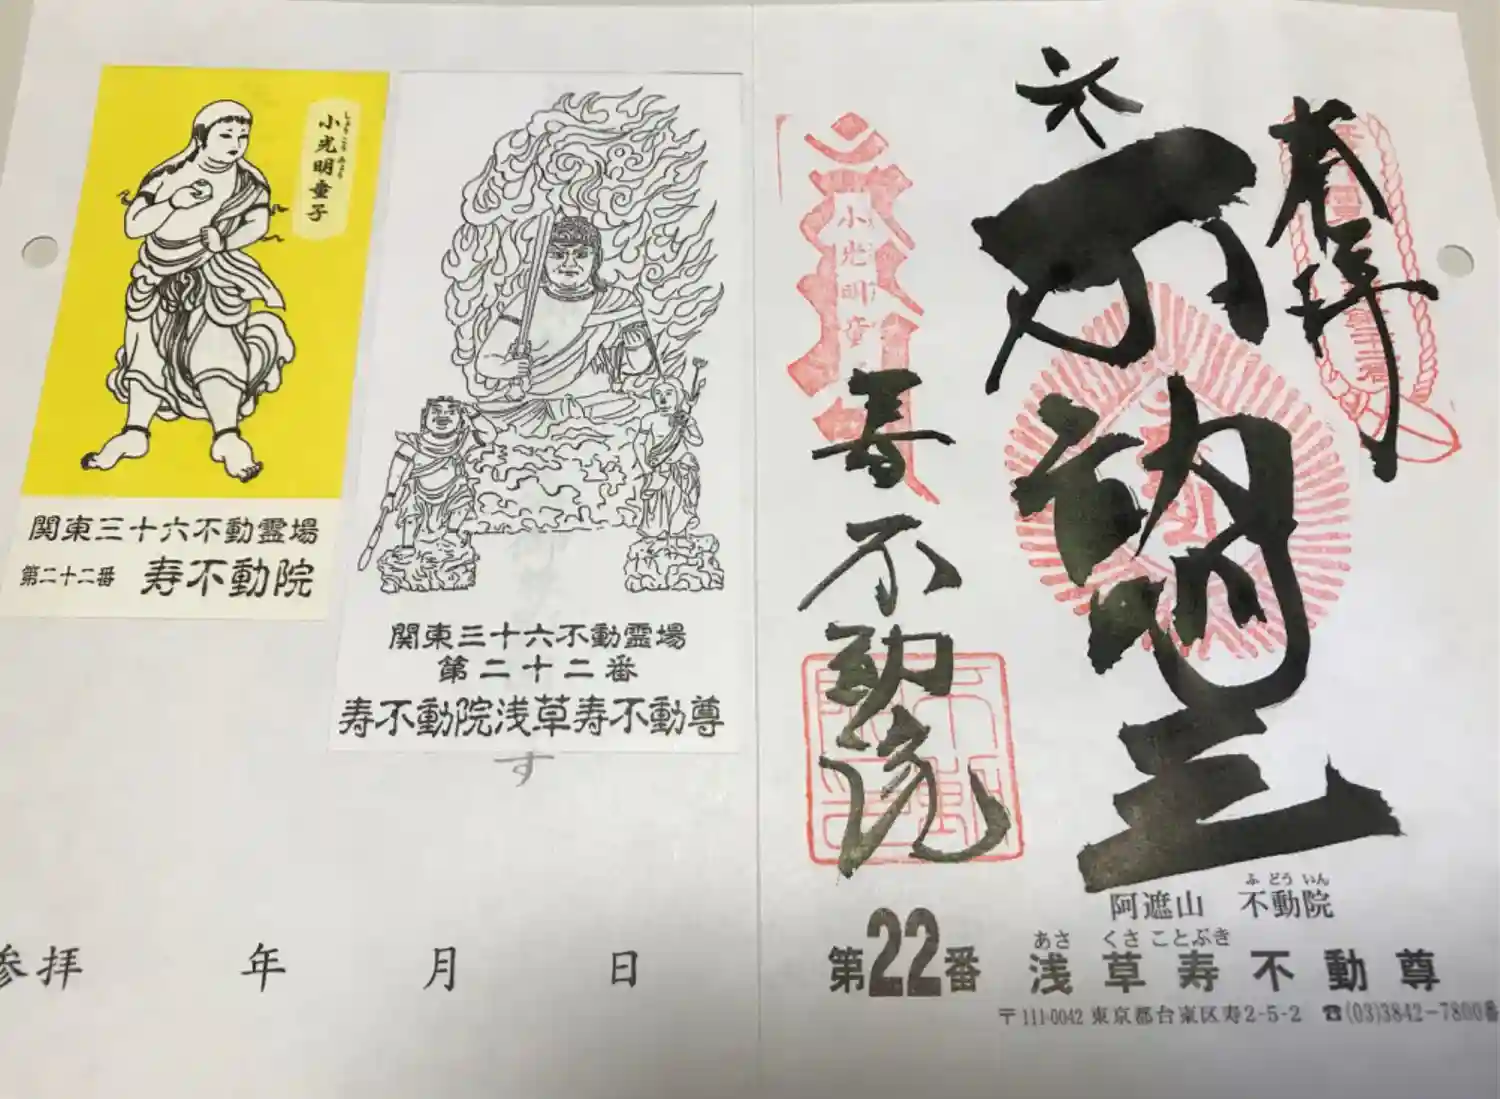 しょうこうみょう
小光明童子
関東三十六不動霊場
第二十二番 寿不動院
関東三十六不動霊場
第二十二番
寿不動院浅草寿不動尊
す
参拝 年 月 日
奉拝
不動
小光明童
寿不動院
ふどういん
阿遮山 不動院
あさくさことぶき
第22番 浅草寿不動尊
〒111-0042 東京都台東区寿2-5-2 ☎(03)3842-7800番